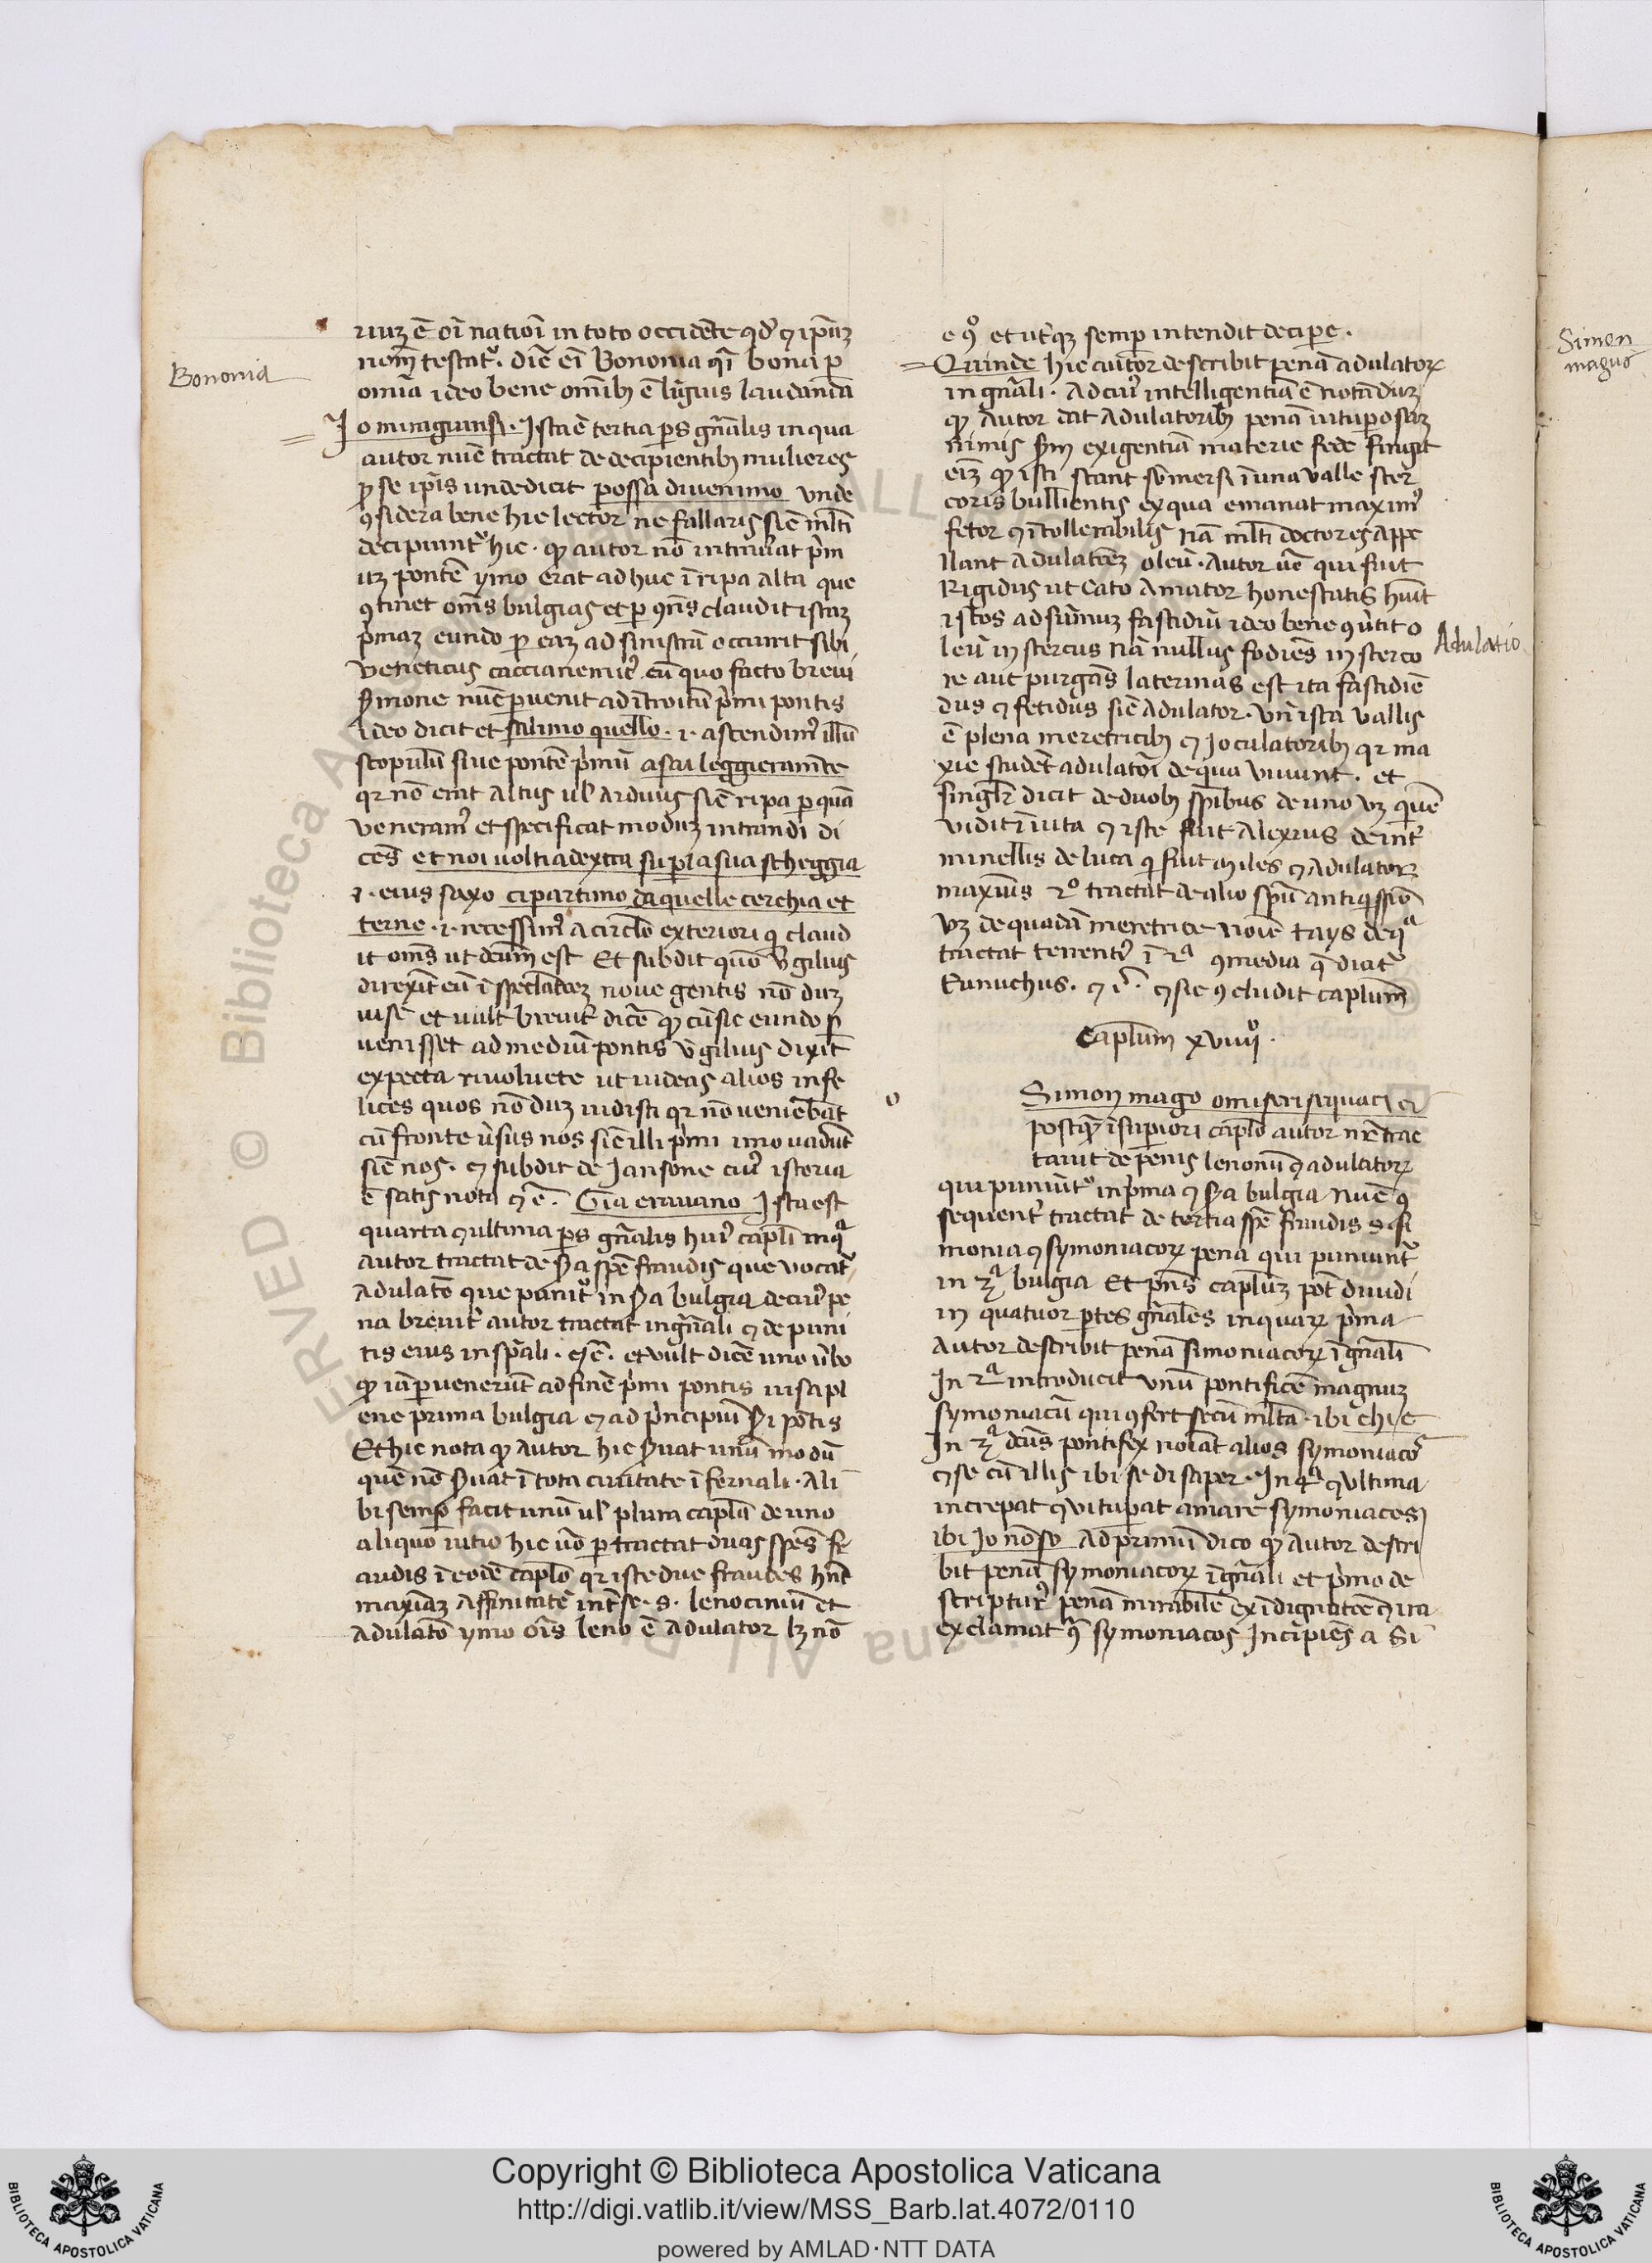 Bononia
riuz ē oī natiōi in toto occidēte qđ ⁊ ip̄az
nom̄ testat᷑. dīc eī Bononia q̄i bona p
omīa ideo bene omībꝫ ē līguis laudanda
Jo mi ragiunsi. Ista ē tertia ps gn̄alis in qua
autor nūc tractat de decipientibꝫ mulieres
p se ip̄is unde dicit possa diuenimo vnde
ꝯsidera bene hic lector ne fallaris sic ml̄ti
decipiunt᷑ hic. qꝫ autor nō intrauerat p̍m
uz pontē ymo erat adhuc ī ripa alta que
ꝯtinet om̄s bulgias et p ꝯn̄s claudit istaz
p̍maz eundo p eaz ad sinistrā occurrit sibi
Veneticus caccianemic᷒ cū quo facto breui
Sermone nūc puenit ad introitū p̍mi pontis
Ideo dicit et salimo quello. i. ascendim᷒ illū
scopulū siue pontē p̍mū assai leggieramēte
qr nō erat altus ul̄ arduus sic ripa p quā
veneram᷒ et specificat moduz intrandi di
cēs et noi uolti a dextra su p la sua scheggia
i. eius saxo ci partimo da quelle cerchia et
terne. i. recessim᷒ a circl̄o exteriori q̍ claud
it om̄s ut dc̄um est Et subdit quō v̍gilius
direxit eū ī spectac̄oeꝫ noue gentis nō duꝫ
uise et uult breuit̍ dicē qꝫ cū sic eundo p
uenisset ad mediū pontis v̍gilius dixit
expecta riuoluete ut uideas alios infe
lices quos nō duꝫ uidisti qr nō veniebāt
cū fronte u̍sus nos sic illi p̍mi imo uadūt
sic nos. ⁊ subdit de Jansone cui᷒ istoria
ē satis nota ⁊ c̄. Gia erauano Ista est
quarta ⁊ ultima ps gn̄alis hui᷒ capl̄i in qᵃ
autor tractat de Sᵃ spē fraudis que vocat᷑
Adulatō que punit᷑ in Sᵃ bulgia de cui᷒ pe
na breuit̍ autor tractat in gn̄ali ⁊ de puni
tis eius in spāli. ⁊c̄. et vult dicē uno u̍bo
qꝫ iā peruenerūt ad finē p̍mi pontis ui sapl
ene prima bulgia ⁊ ad p̍ncipiū Sⁱ pōtis
Et hic nota qꝫ autor hic Seruat unū modū
quē nō Seruat ī tota ciuitate īfernali. Ali
bi semp facit unū ul̄ plura capl̄a de uno
aliquo uitio hic u̍o ptractat duas spēs fr
audis ī eodē capl̄o qr iste due fraudes hn̄t
maxiaꝫ affinitatē int̍ se. s. lenociniū et
Adulatō ymo oīs leno ē adulator lꝫ nō
e ꝯᵒ et ut̍qꝫ semp intendit decipe.
Quinde hic autor describit penā adulatoꝝ
in gn̄ali. Ad cui᷒ intelligentiā ē notāduꝫ
qꝫ Autor dat adulatoribꝫ penā uituposaꝫ
nimis Sm exigentiā materie fede fingit
eīꝫ qꝫ isti stant sūmersi ī una valle ster
coris bullientis ex qua emanat maxim᷒
fetor ⁊ ītollerabilis nā ml̄ti doctores appe
llant adulatōeꝫ oleū. Autor ūo qui fuit
Rigidus ut Cato Amator honestatis hūit
istos ad sūmuꝫ fastidiū ideo bene ꝯu̍tit o
leū in stercus nā nullus fodiēs in sterco
re aut purgās laterinas est ita fastidiē
dus ⁊ fetidus sic adulator. Vn̄ ista vallis
ē plena meretricibꝫ ⁊ Joculatoribꝫ qr ma
xīe studēt adulatōi de qua viuunt. et
singl̄r dicit de duobꝫ sp̄ibus de uno vꝫ quē
vidit ī uita ⁊ iste fuit Alexius de int̍
minellis de luca q̍ fuit miles ⁊ adulator
maxim᷒s 2ᵒ tractat de alio spū antiquissiō
Vꝫ de quadā meretrice noīe tays de qᵃ
tractat terrenti᷒ ī 2ᵃ ꝯmedia q̄ dicit᷑
Eunuchus. ⁊ c̄. ⁊ sic ꝯcludit capl̄um
Adulatio
Capl̄um xviiiiᵒ.
o
Simon mago o miseri seguaci Ci
postq̄ꝫ ī supiori capl̄o autor nr̄ trac
tauit de penis lenonū ⁊ adulatoꝝ
qui puniūt᷑ in p̍ma ⁊ Sᵃ bulgia nūc ꝯ
sequent̍ tractat de tertia spē fraudis s. si
monia ⁊ symoniacoꝝ pena qui puniunt᷑
in 3ᵃ bulgia Et pn̄s capl̄uꝫ pōt diuidi
in quatuor ptes gn̄ales in quaꝝ p̍ma
Autor describit penā simoniacoꝝ ī gn̄ali
In 2ᵃ introducit vnū pontificē magnuꝫ
symoniacū qui ꝯfert secū ml̄ta. ibi chi e
In 3ᵃ dc̄us pontifex noīat alios symoniaco᷒
⁊ se cū illis ibi se di saper. In 4ᵃ ⁊ vltima
increpat ⁊ vitupat amare symoniacos
ibi Jo nō so Ad primū dico qꝫ autor descri
bit penā symoniacoꝝ ī gn̄ali et p̍mo de
scriptur᷒ penā mirabilē ex īdignatōe ⁊ ira
exclamat ꝯ̄ symoniacos Incipiēs a Si
Simon
magus
Copyright © Biblioteca Apostolica Vaticana
http://digi.vatlib.it/view/MSS_Barb.lat.4072/0110
powered by AMLAD·NTT DATA
BIBLIOTECA APOSTOLICA VATICANA
BIBLIOTECA APOSTOLICA VATICANA